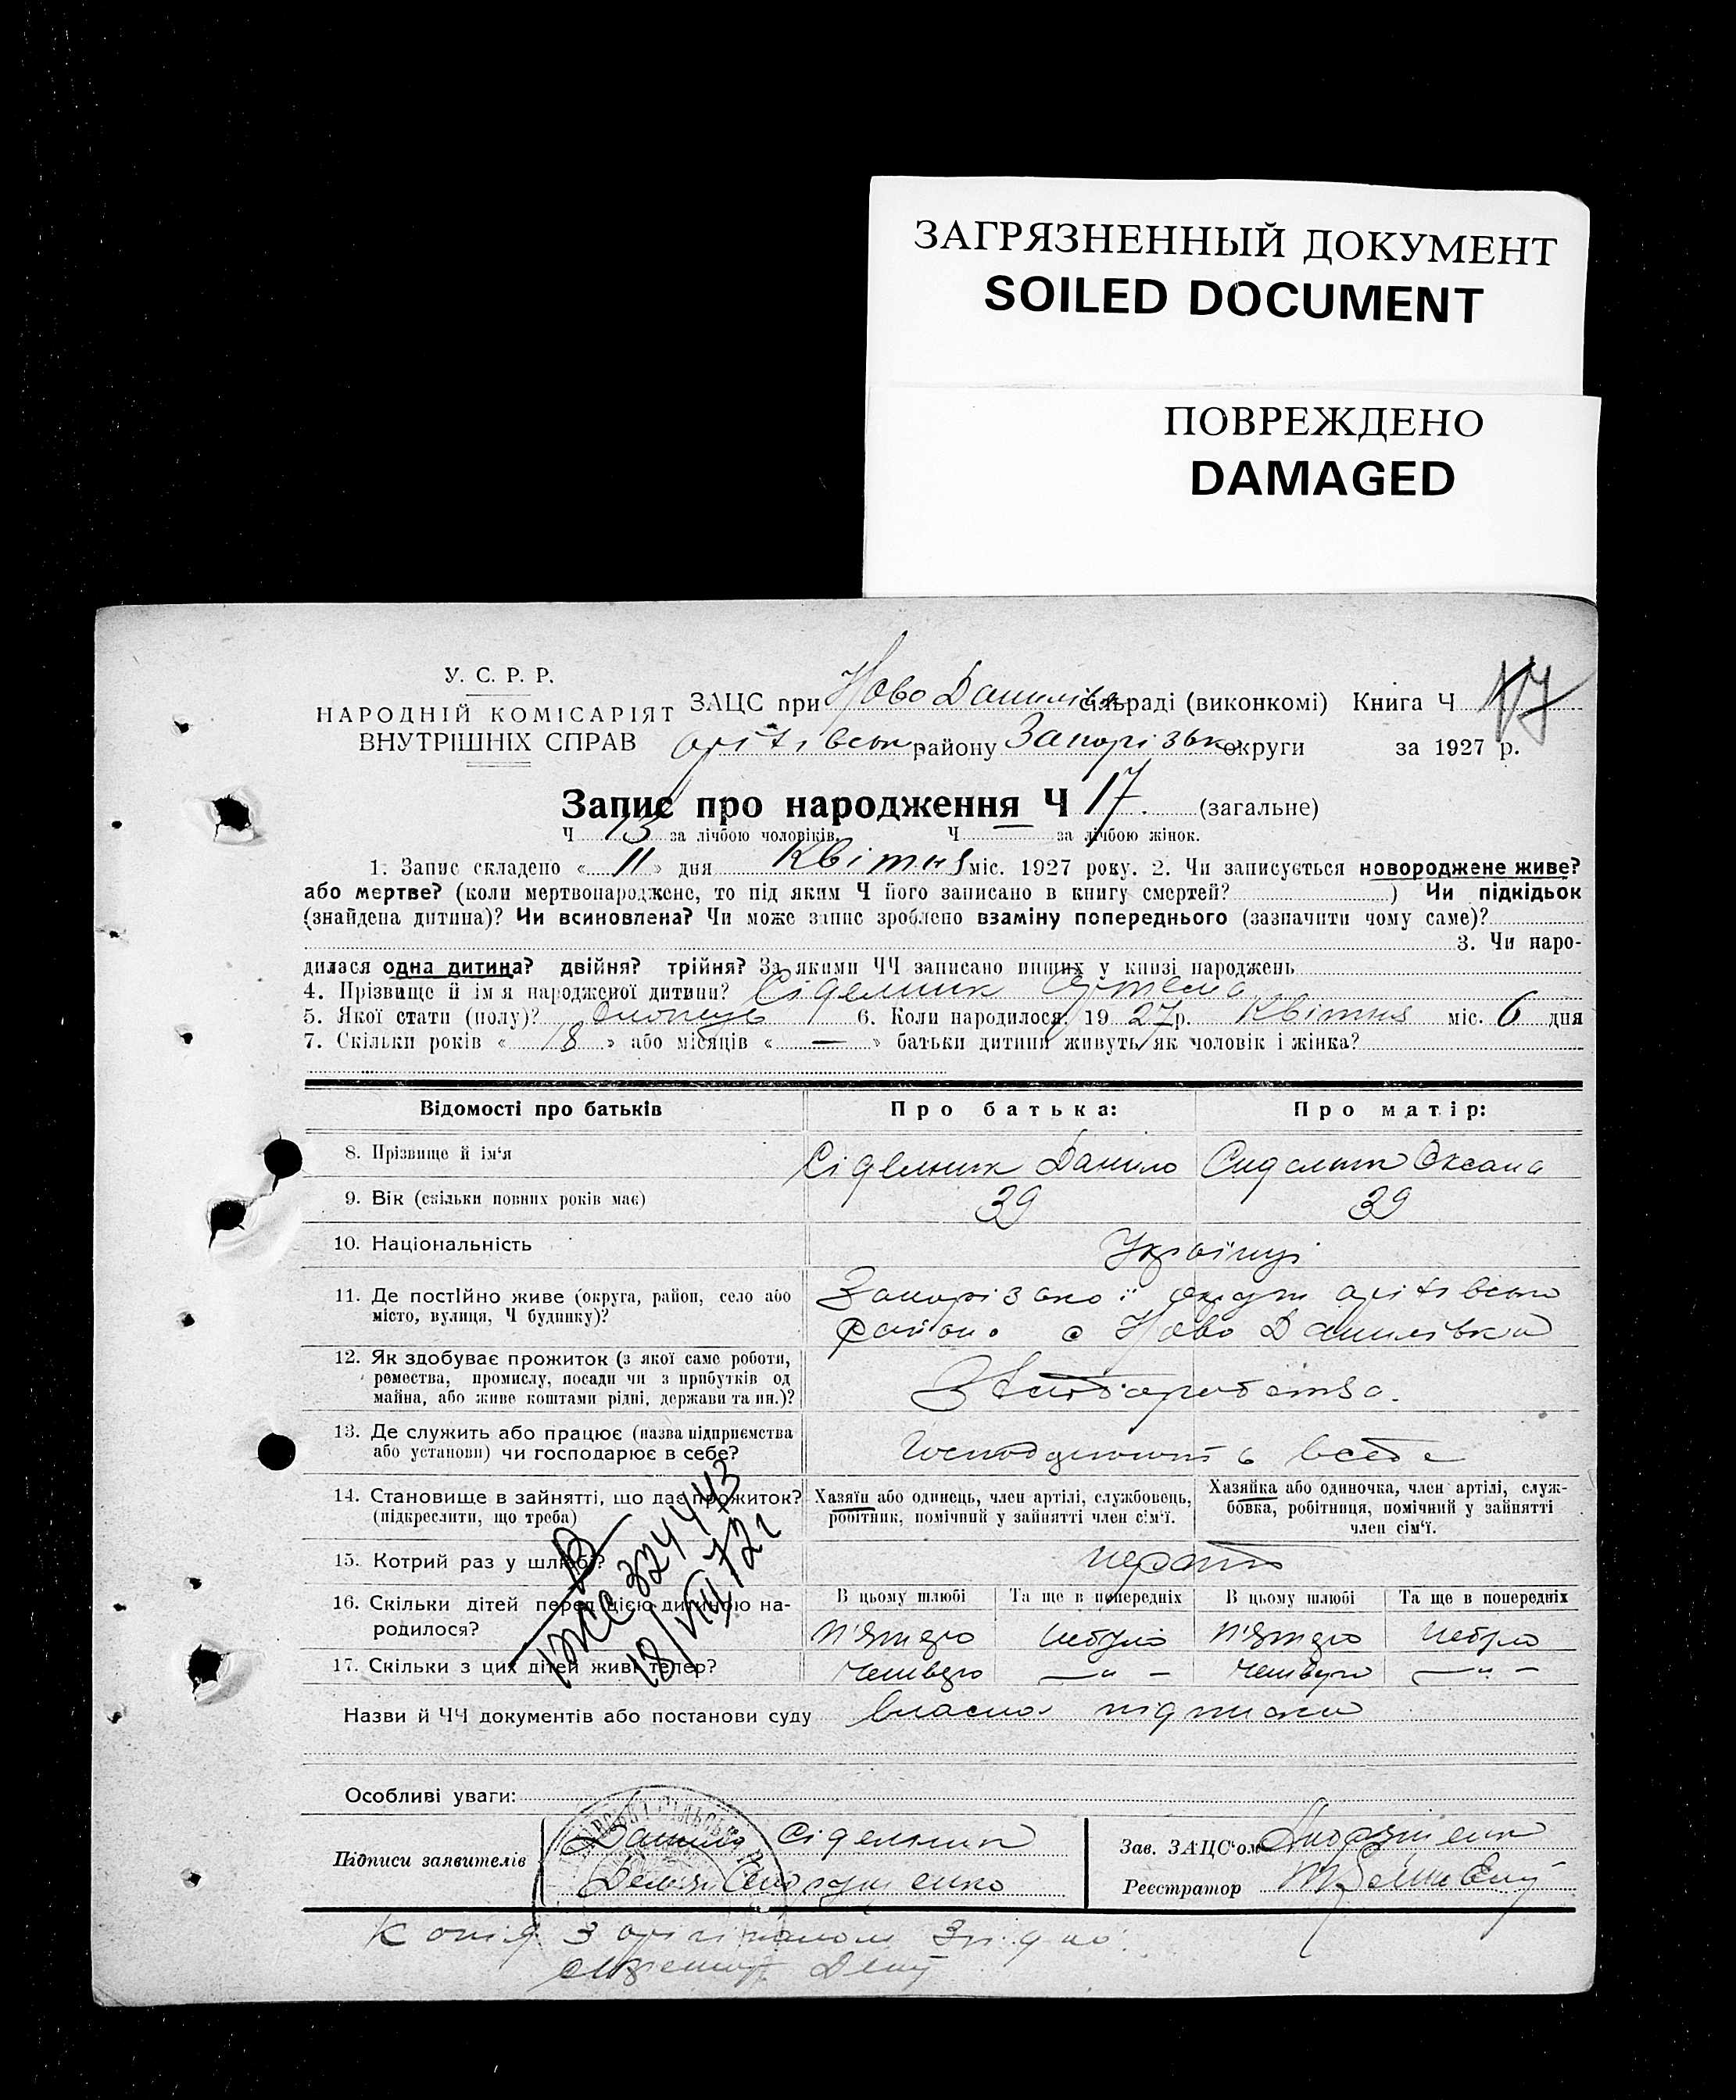 ЗАГРЯЗНЕННЫЙ ДОКУМЕНТ
SOILED DOCUMENT
ПОВРЕЖДЕНО
DAMAGED
У. С. Р. Р.
НАРОДНІЙ КОМІСАРІЯТ
ВНУТРІШНІХ СПРАВ
ЗАЦС при Ново Данилівськ сільраді (виконкомі) Книга Ч
оріхівськ району Запорізьк округи за 1927 р.
Запис про народження Ч 17. (загальне)
Ч 13 за лічбою чоловіків. Ч — за лічбою жінок.
1. Запис складено « 11 » дня Квітня міс. 1927 року. 2. Чи записується новороджене живе?
або мертве? (коли мертвонароджене, то під яким Ч його записано в книгу смертей? ) Чи підкідьок
(знайдена дитина)? Чи всиновлена? Чи може запис зроблено взаміну попереднього (зазначити чому саме)?
3. Чи наро-
дилася одна дитина? двійня? трійня? За якими ЧЧ записано инших у книзі народжень
4. Прізвище й ім'я народженої дитини? Сідельник
5. Якої стати (полу)? хлопець 6. Коли народилося. 19 27 р. Квітня міс. 6 дня
7. Скільки років « 18 » або місяців « — » батьки дитини живуть як чоловік і жінка?
Відомості про батьків Про батька: Про матір:
8. Прізвище й ім'я Сідельник Данило Сидельник Оксана
9. Вік (скільки повних років має) 39 39
10. Національність Українці
11. Де постійно живе (округа, район, село або
місто, вулиця, Ч будинку)?
Запорізької округи оріхівсько
району с Ново Данилівка
12. Як здобуває прожиток (з якої саме роботи,
ремества, промислу, посади чи з прибутків од
майна, або живе коштами рідні, держави та ин.)?
З хліборобства.
13. Де служить або працює (назва підприємства
або установи) чи господарює в себе?
14. Становище в зайнятті, що дає прожиток?
(підкреслити, що треба)
Хазяїн або одинець, член артілі, службовець,
робітник, помічний у зайнятті член сім'ї.
Хазяйка або одиночка, член артілі, служ-
бовка, робітниця, помічний у зайнятті
член сім'ї.
15. Котрий раз у шлюбі?
16. Скільки дітей перед цією дитиною на-
родилося?
В цьому шлюбі Та ще в попередніх В цьому шлюбі Та ще в попередніх
п'ятеро небуло п'ятеро небуло
17. Скільки з цих дітей живі тепер? четверо —"— четверо —"—
324443
Назви й ЧЧ документів або постанови суду власна підписка
Особливі уваги:
Підписи заявителів
Данило Сідельник
Зав. ЗАЦС'ом
Реєстратор
Копія з оригіналом згідно: